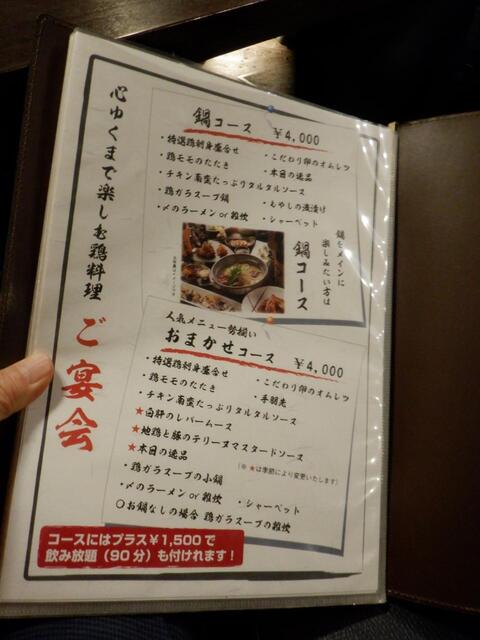 心ゆくまで楽しむ鶏料理
ご宴会
鍋コース ￥4,000
・特選鶏刺身盛合せ
・こだわり卵のオムレツ
・鶏モモのたたき
・本日の逸品
・チキン南蛮たっぷりタルタルソース
・鶏ガラスープ鍋
・もやしの浅漬け
・〆のラーメンor雑炊
・シャーベット
鍋をメインに
楽しみたい方は
鍋コース
人気メニュー勢揃い
おまかせコース ￥4,000
・特選鶏刺身盛合せ
・こだわり卵のオムレツ
・鶏モモのたたき
・手羽先
・チキン南蛮たっぷりタルタルソース
★白肝のレバームース
★地鶏と豚のテリーヌマスタードソース
★本日の逸品
(※★は季節により変更いたします)
・鶏ガラスープの小鍋
・〆のラーメンor雑炊
・シャーベット
〇お鍋なしの場合 鶏ガラスープの雑炊
コースにはプラス￥1,500で
飲み放題（90分）も付けれます！